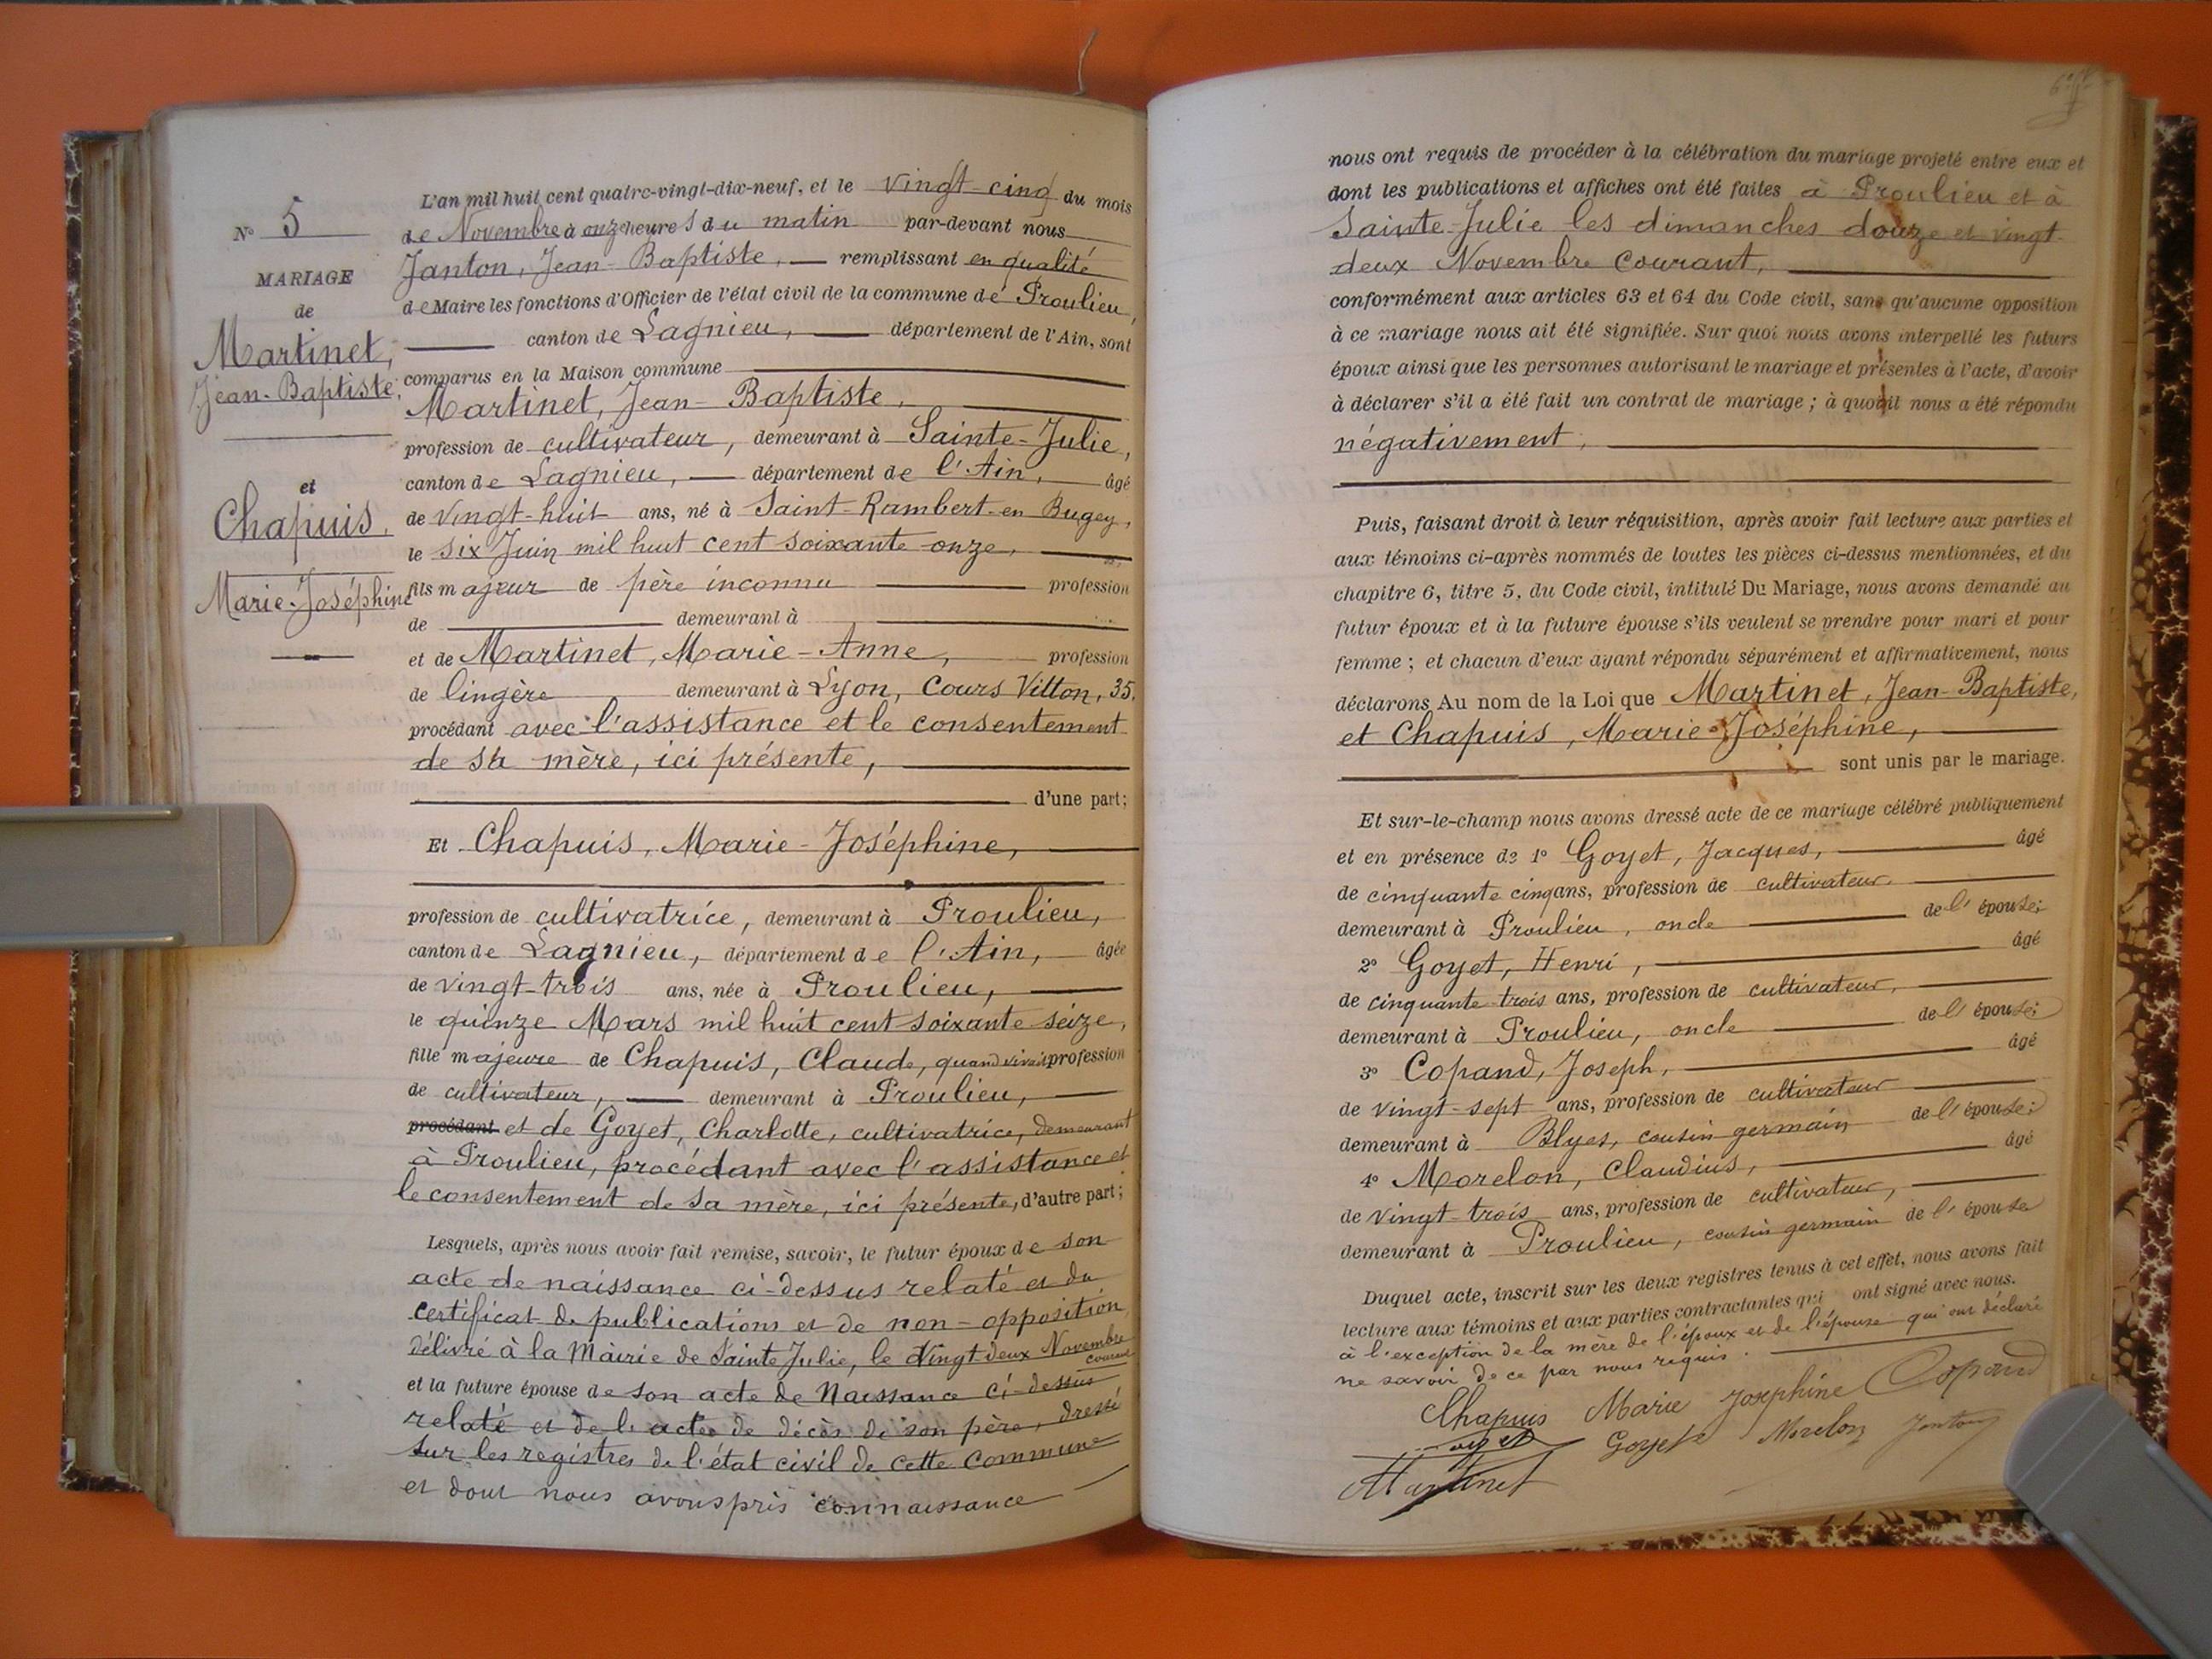 N° 5
MARIAGE
de
Martinet,
Jean-Baptiste,
et
Chapuis,
Marie-Joséphine
L'an mil huit cent quatre-vingt-dix-neuf, et le vingt-cinq du mois
de Novembre à onze heures du matin par-devant nous
Janton, Jean-Baptiste, remplissant en qualité
de Maire les fonctions d'Officier de l'état civil de la commune de Proulieu,
canton de Lagnieu, département de l'Ain, sont
comparus en la Maison commune
Martinet, Jean-Baptiste,
profession de cultivateur, demeurant à Sainte-Julie,
canton de Lagnieu, département de l'Ain, âgé
de vingt-huit ans, né à Saint-Rambert-en Bugey,
le six Juin mil huit cent soixante-onze,
fils majeur de père inconnu profession
de demeurant à
et de Martinet, Marie-Anne, profession
de lingère demeurant à Lyon, Cours Vitton, 35,
procédant avec l'assistance et le consentement
de sa mère, ici présente,
d'une part;
Et Chapuis, Marie-Joséphine,
profession de cultivatrice, demeurant à Proulieu,
canton de Lagnieu, département de l'Ain, âgée
de vingt-trois ans, née à Proulieu,
le quinze Mars mil huit cent soixante seize,
fille majeure de Chapuis, Claude, quand vivait profession
de cultivateur, demeurant à Proulieu,
procédant et de Goyet, Charlotte, cultivatrice, demeurant
à Proulieu, procédant avec l'assistance et
le consentement de sa mère, ici présente, d'autre part;
Lesquels, après nous avoir fait remise, savoir, le futur époux de son
acte de naissance ci-dessus relaté et du
certificat de publications et de non-opposition,
délivré à la Mairie de Sainte Julie, le Vingt deux Novembre
courant
et la future épouse de son acte de Naissance ci-dessus
relaté et de l'acte de décès de son père, dressé
sur les registres de l'état civil de cette commune
et dont nous avons pris connaissance
nous ont requis de procéder à la célébration du mariage projeté entre eux et
dont les publications et affiches ont été faites à Proulieu et à
Sainte-Julie les dimanches douze et vingt-
deux Novembre courant,
conformément aux articles 63 et 64 du Code civil, sans qu'aucune opposition
à ce mariage nous ait été signifiée. Sur quoi nous avons interpellé les futurs
époux ainsi que les personnes autorisant le mariage et présentes à l'acte, d'avoir
à déclarer s'il a été fait un contrat de mariage ; à quoi il nous a été répondu
négativement;
Puis, faisant droit à leur réquisition, après avoir fait lecture aux parties et
aux témoins ci-après nommés de toutes les pièces ci-dessus mentionnées, et du
chapitre 6, titre 5, du Code civil, intitulé Du Mariage, nous avons demandé au
futur époux et à la future épouse s'ils veulent se prendre pour mari et pour
femme ; et chacun d'eux ayant répondu séparément et affirmativement, nous
déclarons Au nom de la Loi que Martinet, Jean-Baptiste,
et Chapuis, Marie-Joséphine,
sont unis par le mariage.
Et sur-le-champ nous avons dressé acte de ce mariage célébré publiquement
et en présence de 1° Goyet, Jacques, âgé
de cinquante cinq ans, profession de cultivateur,
demeurant à Proulieu, oncle de l'épouse;
2° Goyet, Henri, âgé
de cinquante-trois ans, profession de cultivateur,
demeurant à Proulieu, oncle de l'épouse;
3° Copand, Joseph, âgé
de vingt-sept ans, profession de cultivateur
demeurant à Blyes, cousin germain de l'épouse;
4° Morelon, Claudius, âgé
de vingt-trois ans, profession de cultivateur,
demeurant à Proulieu, cousin germain de l'épouse
Duquel acte, inscrit sur les deux registres tenus à cet effet, nous avons fait
lecture aux témoins et aux parties contractantes qui ont signé avec nous.
à l'exception de la mère de l'époux et de l'épouse qui ont déclaré
ne savoir de ce par nous requis.
Chapuis Marie Josephine Copand
Goyet Morelon Janton
Martinet